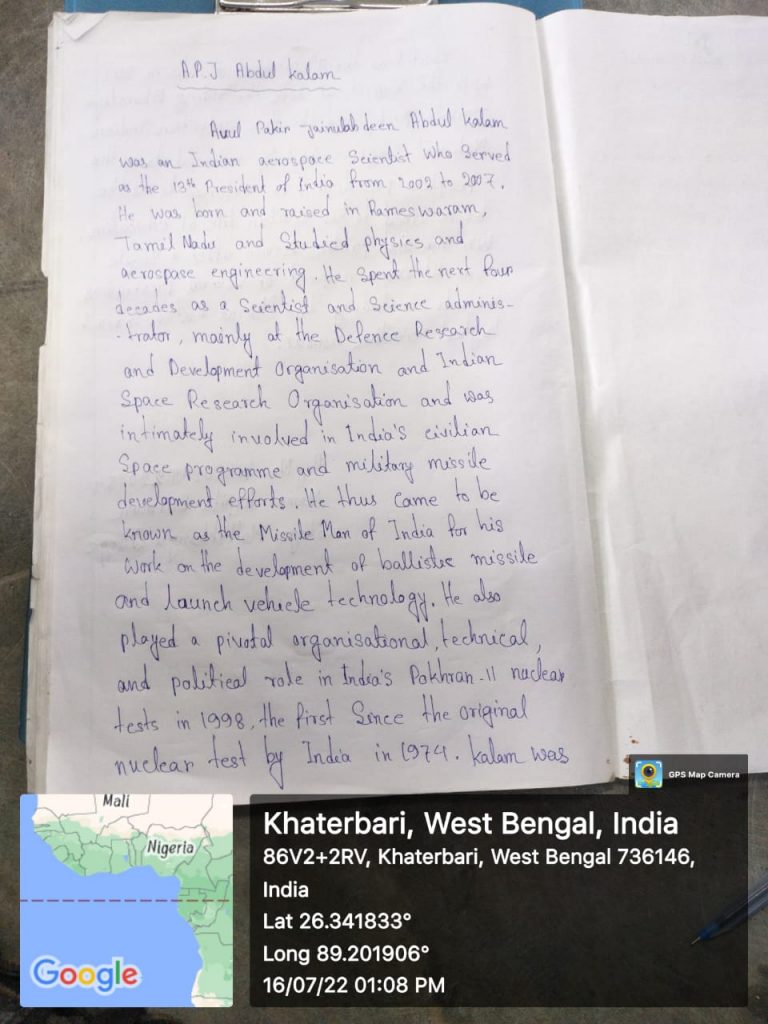 A.P.J Abdul Kalam
Avul Pakir Jainulabdeen Abdul Kalam
was an Indian aerospace Scientist who Served
as the 13th President of India from 2002 to 2007.
He was born and raised in Rameswaram,
Tamil Nadu and Studied physics and
aerospase engineering. He spent the next four
decades as a Scientist and Science adminis-
-trator, mainly at the Defence Research
and Development Organisation and Indian
Space Research Organisation and was
intimately involved in India's civilian
Space programme and military missile
development efforts. He thus came to be
known as the Missile Man of India for his
work on the development of ballistic missile
and launch vehicle technology. He also
played a pivotal organisational, technical,
and political role in India's Pokhran-II nuclear
tests in 1998, the first Since the original
nuclear test by India in 1974. Kalam was
GPS Map Camera
Mali
Nigeria
Google
Khaterbari, West Bengal, India
86V2+2RV, Khaterbari, West Bengal 736146,
India
Lat 26.341833°
Long 89.201906°
16/07/22 01:08 PM